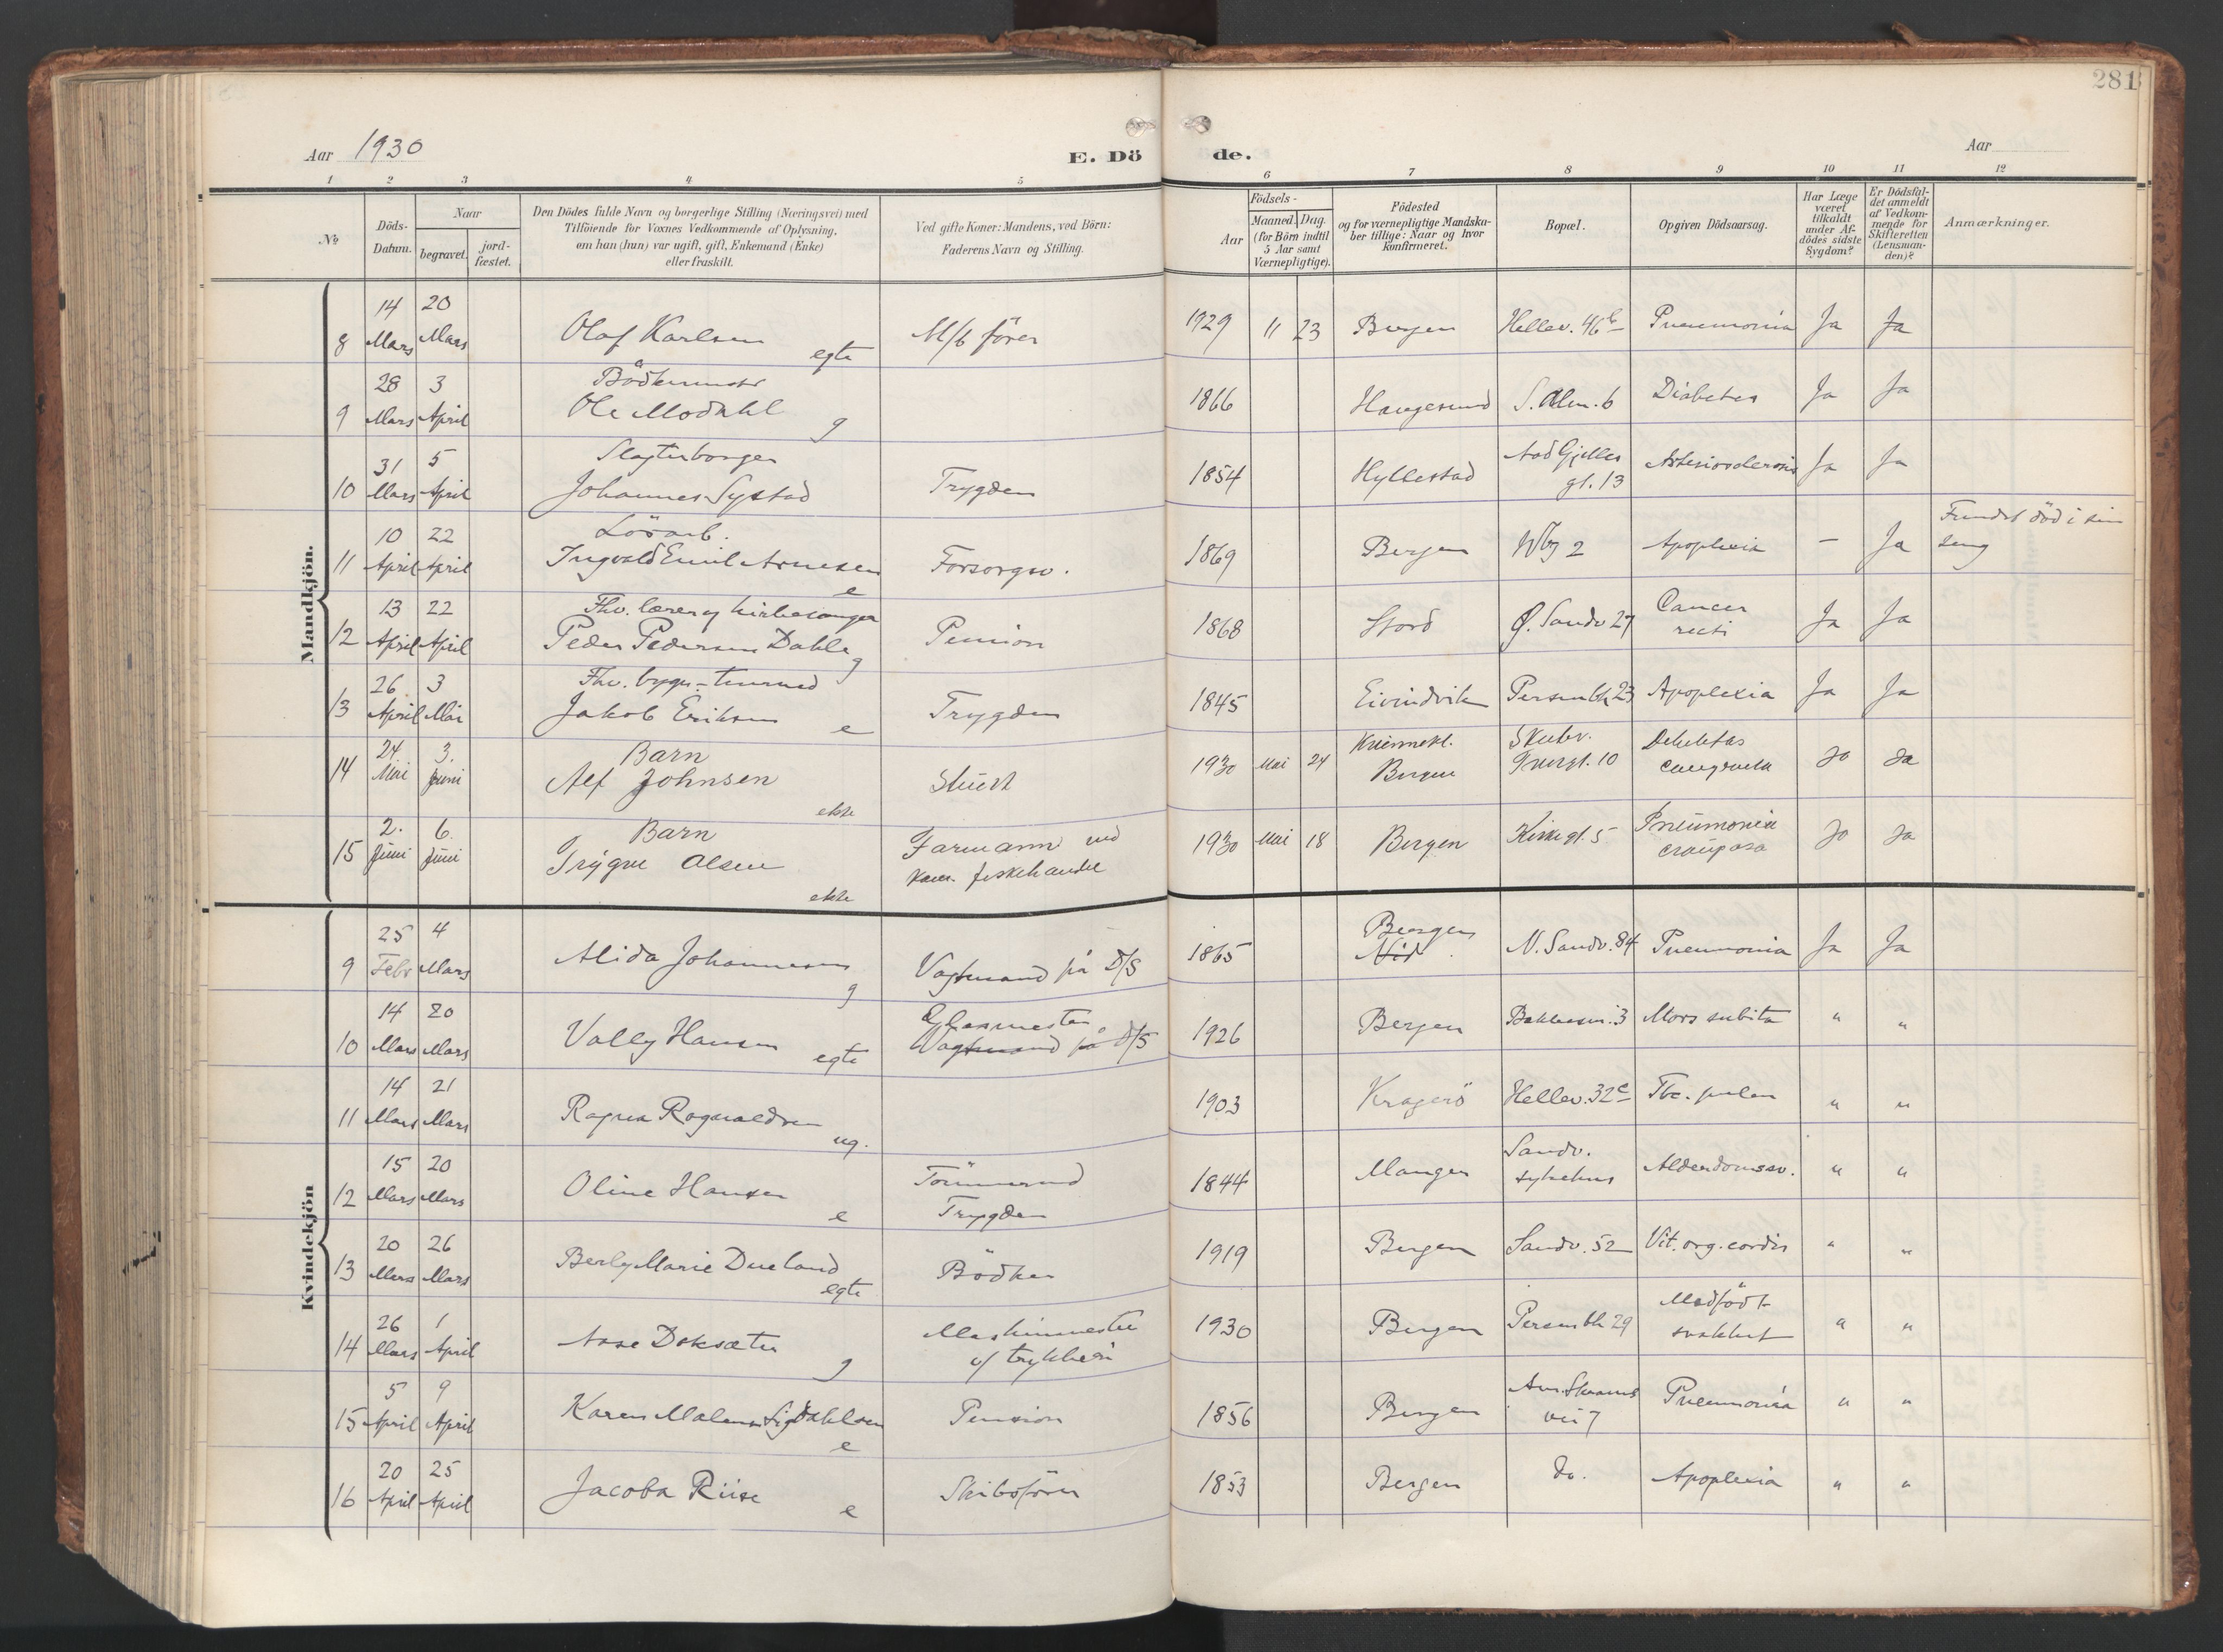 281
Aar 1930
E. Dö
de.
Aar
1 2 3 4 5 6 7 8 9 10 11 12
№
Döds-
Datum.
Naar
begravet.
jord-
fæstet.
Den Dödes fulde Navn og borgerlige Stilling (Næringsvei) med
Tilföiende for Voxnes Vedkommende af Oplysning,
om han (hun) var ugift, gift, Enkemand (Enke)
eller fraskilt.
Ved gifte Koner: Mandens, ved Börn:
Faderens Navn og Stilling.
Födsels-
Aar
Maaned.
Dag.
(for Börn indtil
5 Aar samt
Værnepligtige).
Födested
og for værnepligtige Mandska-
ber tillige: Naar og hvor
konfirmeret.
Bopæl.
Opgiven Dödsaarsag.
Har Læge
været
tilkaldt
under Af-
dödes sidste
Sygdom?
Er Dödsfal-
det anmeldt
af Vedkom-
mende for
Skifteretten
(Lensman-
den)?
Anmærkninger.
Mandkjön.
8 14 Mars 20 Mars Olaf Karlsen egte M/b förer 1929 11 23 Bergen Hellev. 46b Pneumonia Ja Ja
9 28 Mars 3 April Bödkermstr
Ole Modahl g 1866 Haugesund S. Alm. 6 Diabetes Ja Ja
10 31 Mars 5 April Slagterborger
Johannes Systad Trygden 1854 Hyllestad Aad Gjelles
gt. 13 Arteriosclerosis Ja Ja
11 10 April 22 April Lösarb.
Ingvald Emil Arnesen e Forsorgsv. 1869 Bergen 2 Apoplexia – Ja Fundet död i sin
seng
12 13 April 22 April Fhv. lærer og kirkesanger
Peder Pedersen Dahle g Pension 1868 Stord Ø. Sandv 27 Cancer
recti Ja Ja
13 26 April 3 Mai Fhv. bygn.-tømmermd
Jakob Eriksen e Trygden 1845 Eivindvik Persenbk 23 Apoplexia Ja Ja
14 24. Mai 3. Juni Barn
Alf Johnsen ekte 1930 Mai 24 Kvinnekl.
Bergen Skutev.
gt. 10 Debilitas
congenita Ja Ja
15 2. Juni 6. Juni Barn
Trygve Olsen ekte Formann ved
kom. fiskehandel 1930 Mai 18 Bergen Kirkegt. 5 Pneumonia
crouposa Ja Ja
Kvindekjön
9 25 Febr 4 Mars Alida Johannesen g Vagtmand på D/S 1865 Bergen
Nid N. Sandv. 84 Pneumonia Ja Ja
10 14 Mars 20 Mars Vally Hansen egte Glasmester
Vagtmand på D/S 1926 Bergen 3 Mors subita " "
11 14 Mars 21 Mars Ragna Rognaldsen ug. 1903 Kragerö Hellev. 32c Tbc. pulm " "
12 15 Mars 20 Mars Oline Hansen e Tömmermd
Trygden 1844 Manger Sandv.
sykehus Alderdomssv. " "
13 20 Mars 26 Mars Berly Marie Dueland egte Bödker 1919 Bergen Sandv. 52 Vit. org. cordis " "
14 26 Mars 1 April Aase Doksæter g Maskinmester
v/ trykkeri 1930 Bergen Persenbk 29 Medfödt
svakhet " "
15 5 April 9 April Karen Malene Sigdahlsen e Pension 1856 Bergen Am. Skrams
vei 7 Pneumonia " "
16 20 April 25 April Jacoba Riise e Skibsförer 1853 Bergen do. Apoplexia " "